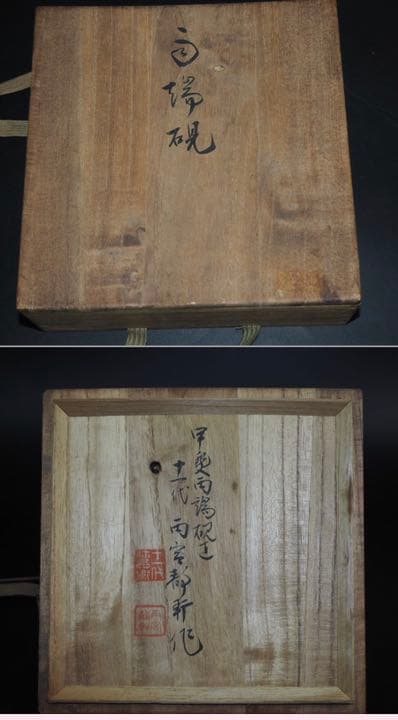 雨端硯
甲斐雨端硯
十一代 雨宮静軒作